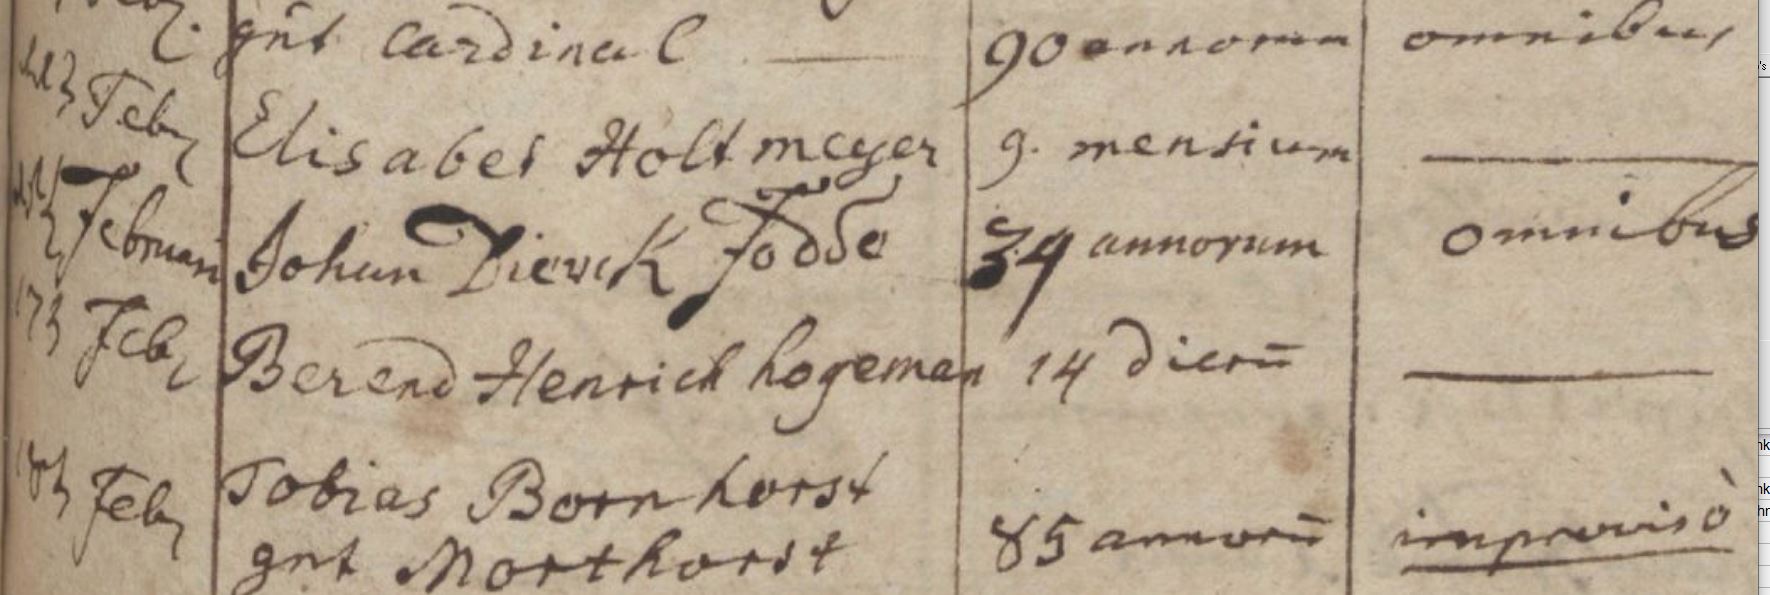 gnt Cardinal — 90 annorum omnibus
Feb Elisabet Holtmeyer 9. mensium —
Februari Johan Dierck Fodde 34 annorum omnibus
173 Feb Berend Henrich hogeman 14 dierū —
183 Feb Tobias Bornhorst
gnt Morthorst 85 annorū improvisò